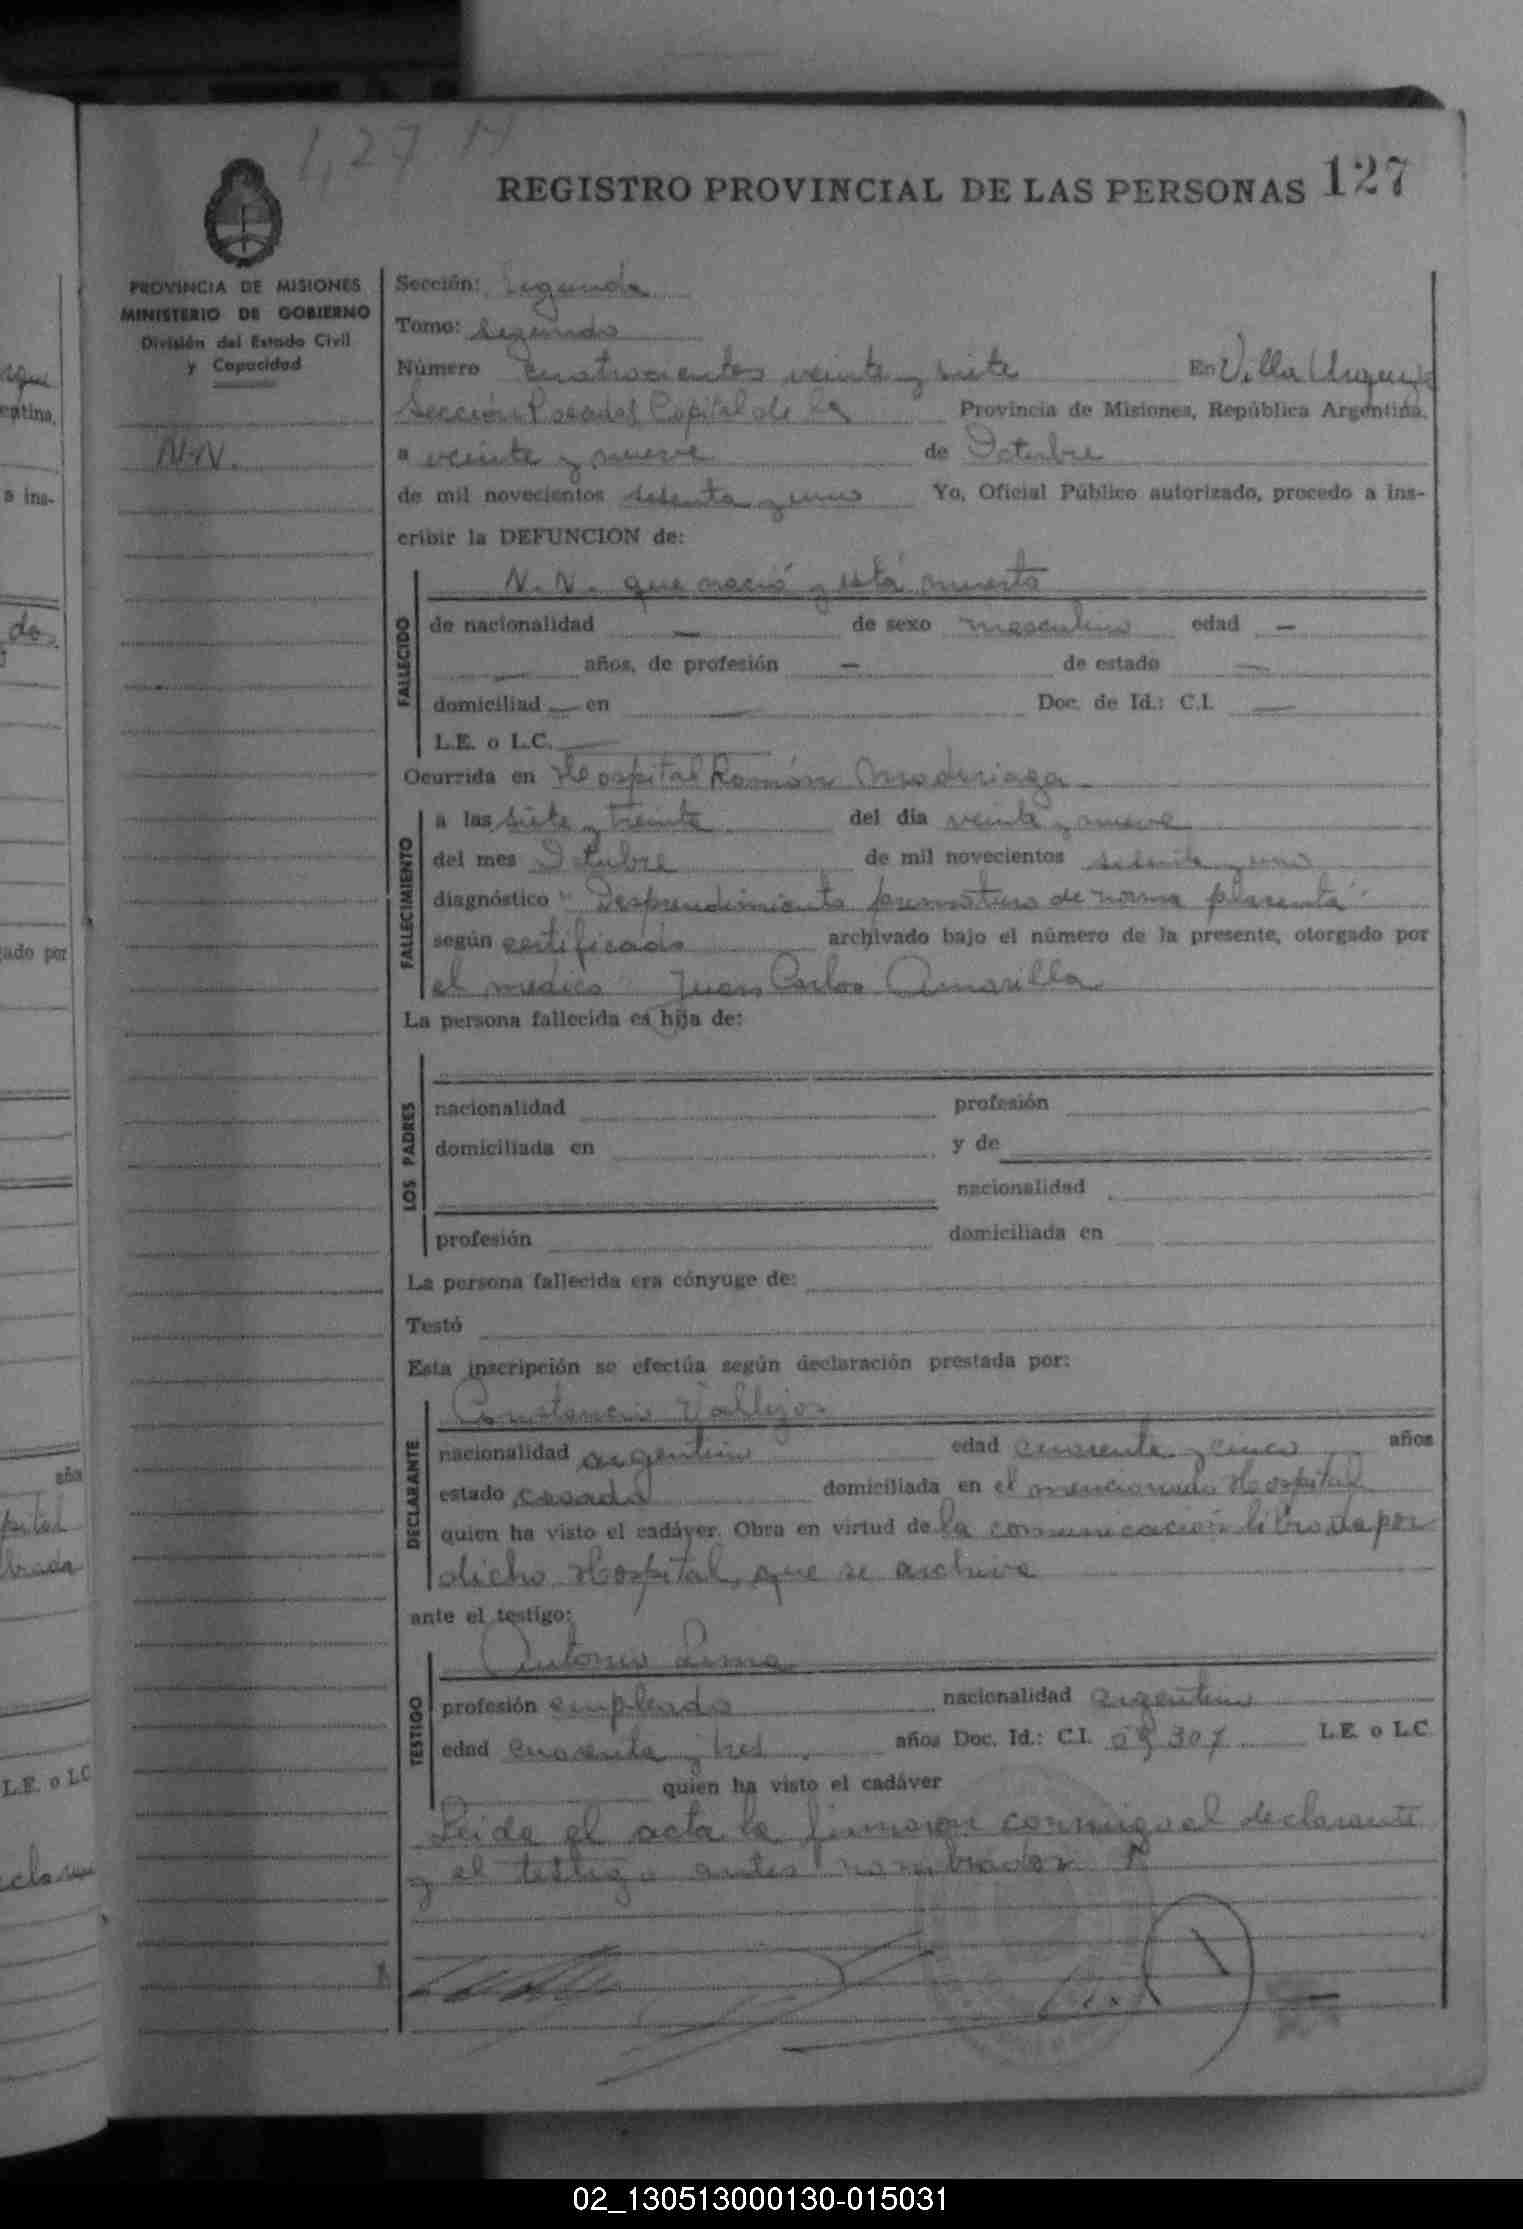 427 N
REGISTRO PROVINCIAL DE LAS PERSONAS 127
PROVINCIA DE MISIONES
MINISTERIO DE GOBIERNO
División del Estado Civil
y Capacidad
N.N.
Sección: Segunda
Tomo: Segundo
Número cuatrocientos veinte y siete En Villa Urquiza
Sección Posadas Capital de la Provincia de Misiones, República Argentina,
a veinte y nueve de Octubre
de mil novecientos setenta y uno Yo, Oficial Público autorizado, procedo a ins-
cribir la DEFUNCION de:
N.N. que nació y está muerto
FALLECIDO
de nacionalidad — de sexo masculino edad —
— años, de profesión — de estado —
domiciliad — en — Doc. de Id.: C.I. —
L.E. o L.C. —
Ocurrida en Hospital Ramón Madariaga
FALLECIMIENTO
a las siete y treinta del día veinte y nueve
del mes Octubre de mil novecientos setenta y uno
diagnóstico "Desprendimiento prematuro de norma placenta"
según certificado archivado bajo el número de la presente, otorgado por
el médico Juan Carlos Amarilla
La persona fallecida es hija de:
LOS PADRES
nacionalidad profesión
domiciliada en y de
nacionalidad
profesión domiciliada en
La persona fallecida era cónyuge de:
Testó
Esta inscripción se efectúa según declaración prestada por:
Constancio Vallejos
DECLARANTE
nacionalidad argentino edad cuarenta y cinco años
estado casado domiciliada en el mencionado Hospital
quien ha visto el cadáver. Obra en virtud de la comunicación librada por
dicho Hospital, que se archiva
ante el testigo:
Antonio Lima
TESTIGO
profesión empleado nacionalidad argentino
edad cuarenta y tres años Doc. Id.: C.I. L.E. o L.C
quien ha visto el cadáver
Leida el acta la firmaron conmigo el declarante
y el testigo antes nombrados
02_130513000130-015031